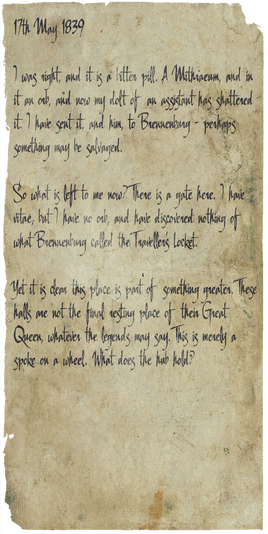 17th May 1839
I was right, and it is a bitter pill. A Mithraeum, and in
it an orb, and now my dolt of an assistant has shattered
it. I have sent it, and him, to Brennenburg - perhaps
something may be salvaged.
So what is left to me now? There is a gate here. I have
vitae, but I have no orb, and have discovered nothing of
what Brennenburg called the Travellers Locket.
Yet it is clear this place is part of something greater. These
halls are not the final resting place of their Great
Queen, whatever the legends may say. This is merely a
spoke on a wheel. What does the hub hold?